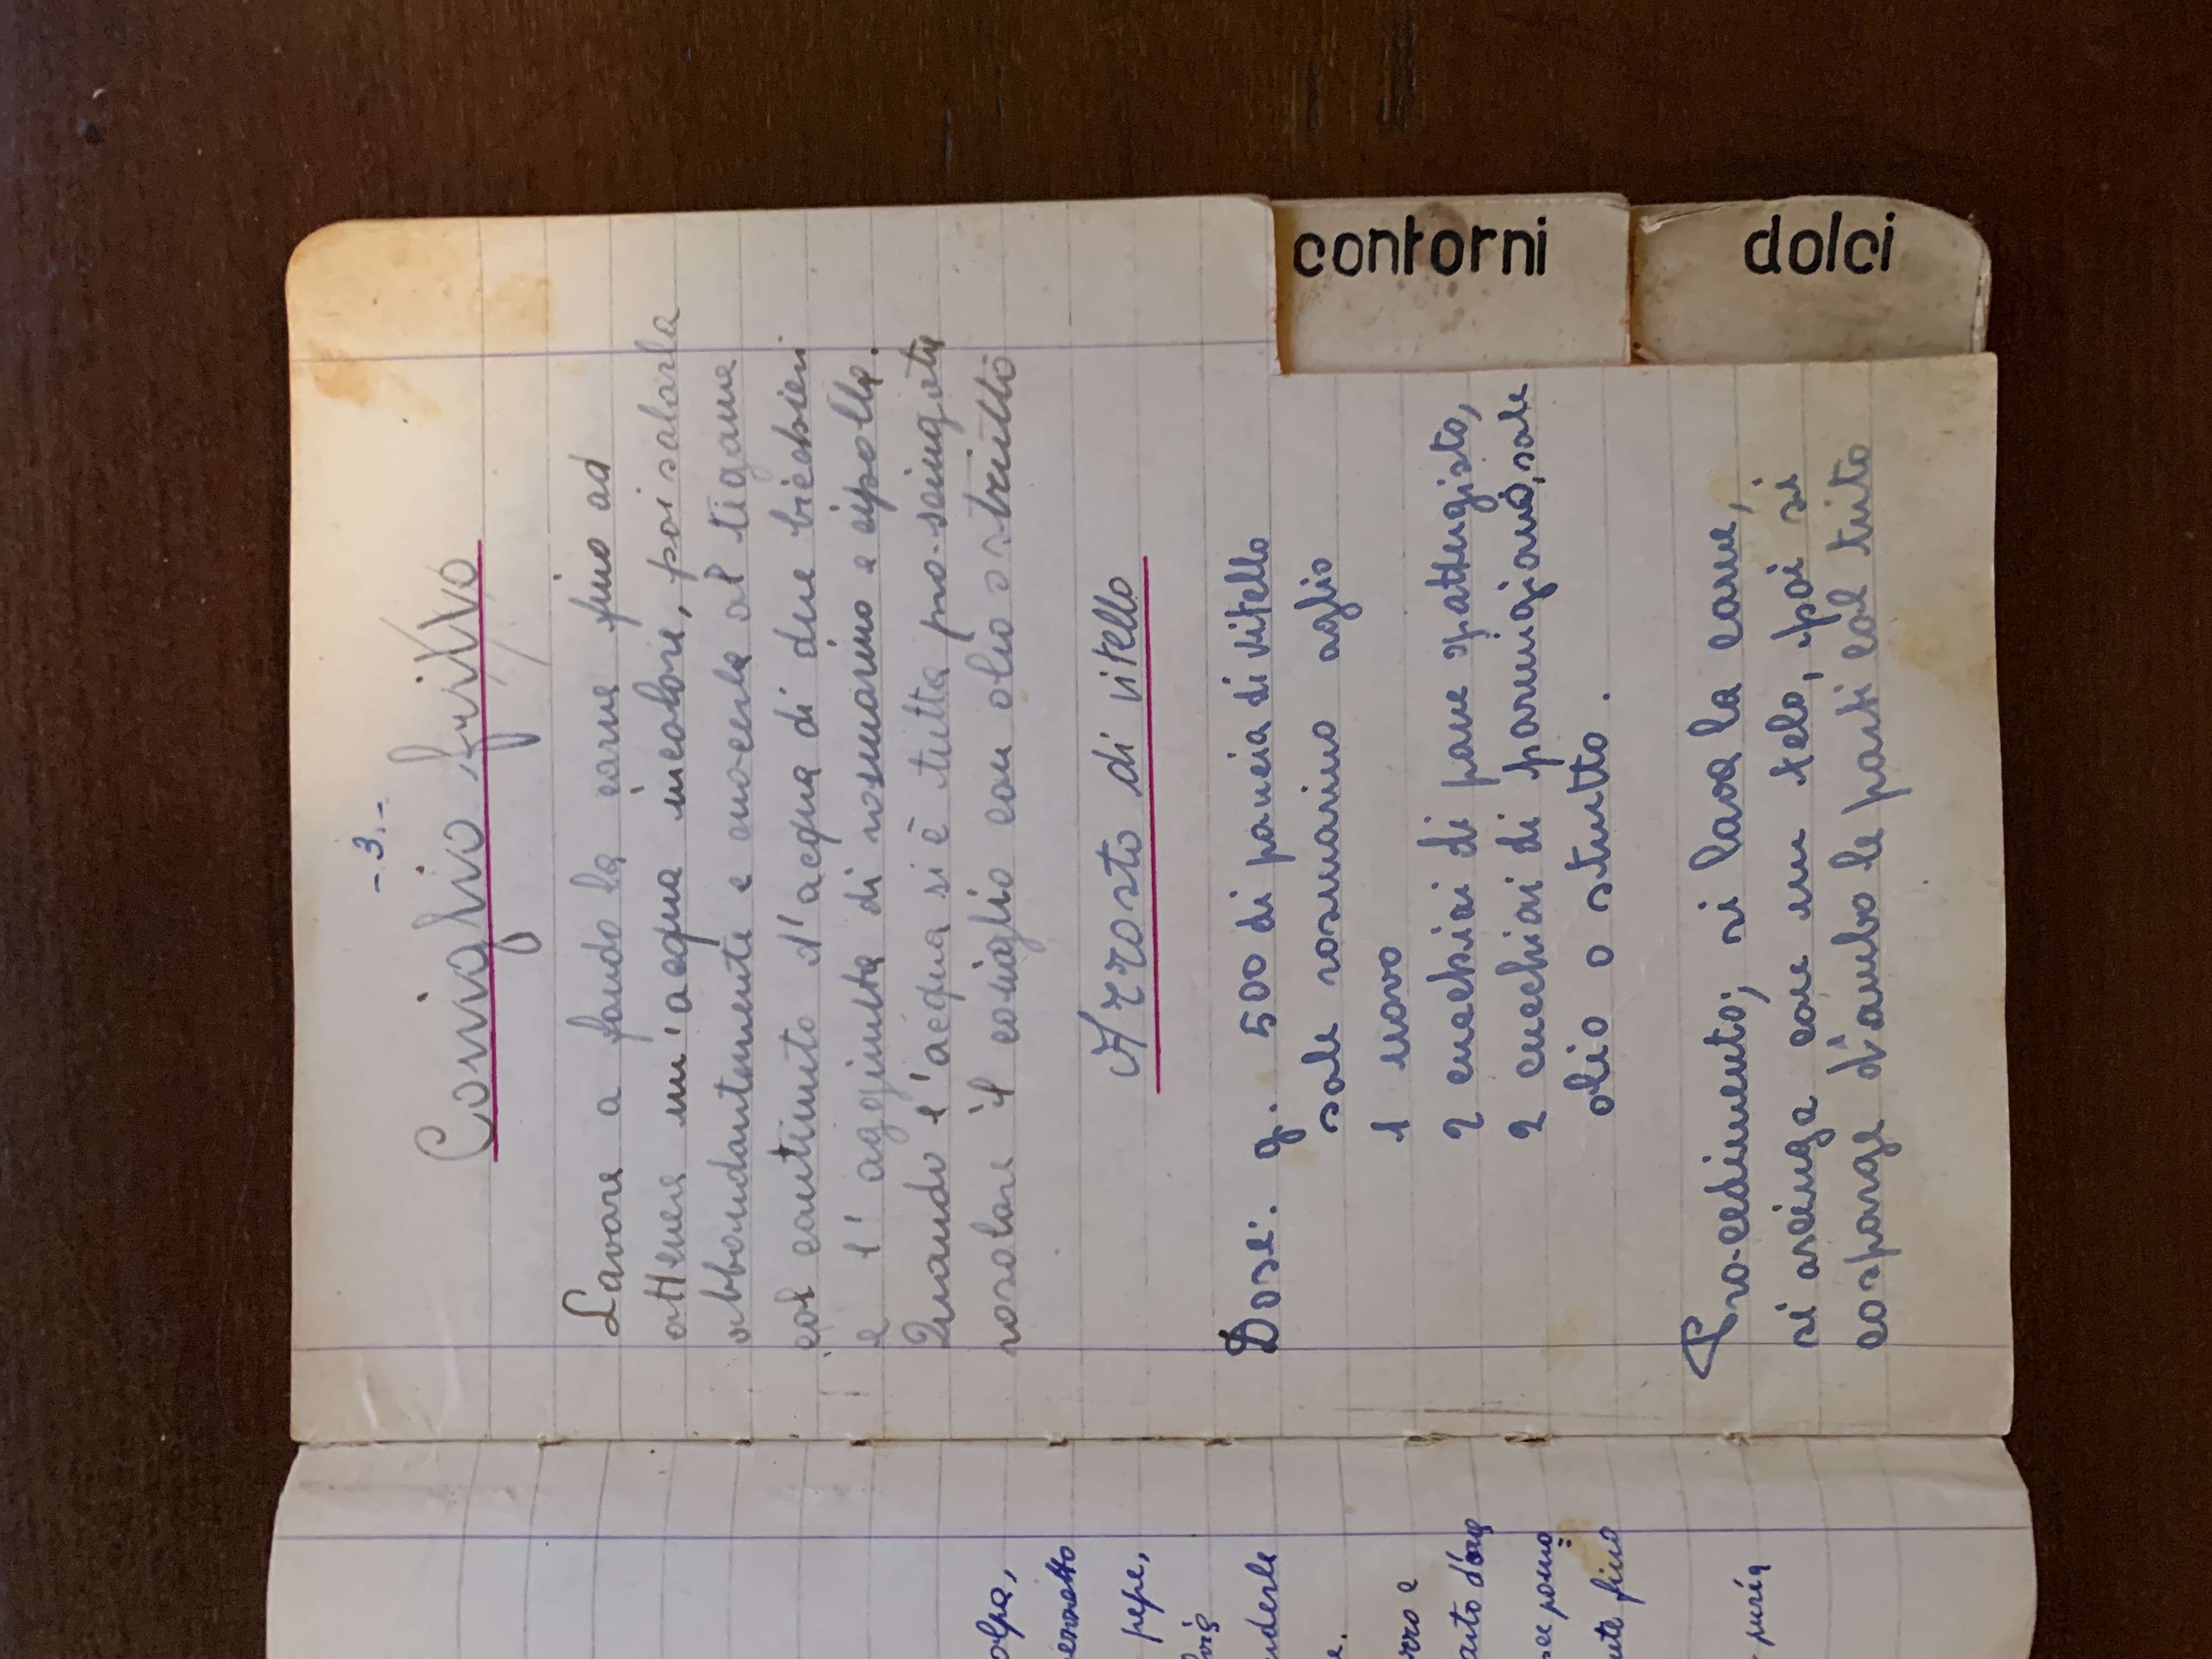 olpa,
pepe,
uderle
e.
rro e
arto d'ora
ute fino
- puría
- 3. -
Coniglio fritto
Lavare a fondo la carne fino ad
ottenere un'acqua incolore, poi salarla
abbondantemente e cuocerla al tegame
col contenuto d'acqua di due bicchieri
e l'aggiunta di rosmarino e cipolla.
Quando l'acqua si è tutta pro-sciugata
rosolare il coniglio con olio o strutto
Arrosto di vitello
Dose: g. 500 di pancia di vitello
sale rosmarino aglio
1 uovo
2 cucchiai di pane grattugiato,
2 cucchiai di parmigiano, sale
olio o strutto.
Pro-cedimento; si lava la carne,
si asciuga con un telo, poi si
cosparge d'ambo le parti col trito
contorni
dolci